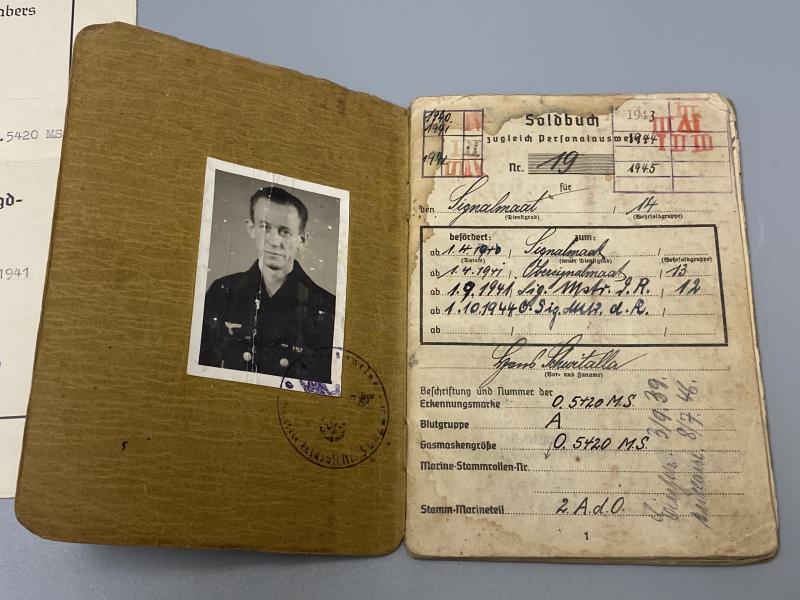 abers
.5420 MS
gd-
1941
5
1940
1941
1943
1944
1945
Soldbuch
zugleich Personalausweis
Nr. 19
für
den Signalmaat / 14
(Dienstgrad) (Wehrsoldgruppe)
befördert: zum:
ab 1.4.1940 Signalmaat
(Datum) (neuer Dienstgrad) (Wehrsoldgruppe)
ab 1.4.1941 Obersignalmaat 13
ab 1.9.1941 Sig. Mstr. d. R. 12
ab 1.10.1944 O. Sig. Mstr. d. R.
ab
Hans Schwitalla
(Vor- und Zuname)
Beschriftung und Nummer der
Erkennungsmarke O. 5420 M.S.
Blutgruppe A
Gasmaskengröße O. 5420 M.S.
Marine-Stammrollen-Nr.
Stamm-Marineteil 2. A.d.O.
3/9.39.
8/7.46.
1